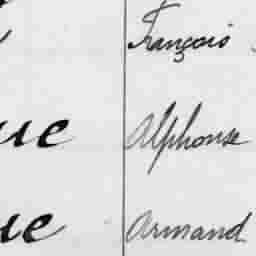 François
ue Alphonse
ue Armand